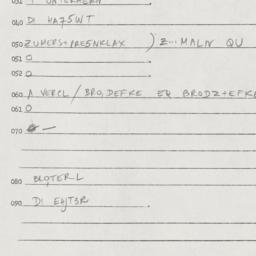 040 DI HA75WT
050 ZUMERS+PRE5NKLAX ) Z... MALN QU
051 O
052 O
060 A VERCL / BRO, DEFKE EQ BRODZ+EFKE
061 O
070
080 BLOTER L
090 DI